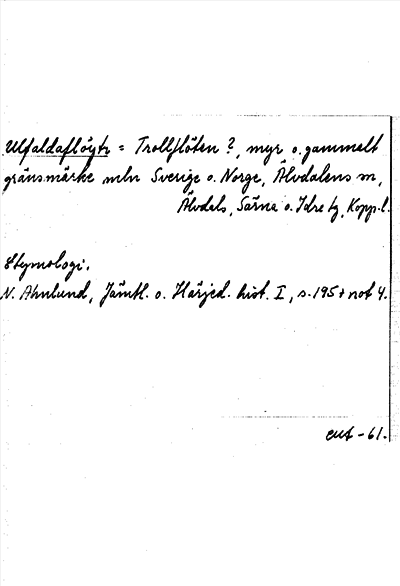 Ulfaldaflöytr = Trollflöten ?, myr o. gammalt
gränsmärke mln Sverige o. Norge, Älvdalens sn,
Älvdals, Särna o. Idre tg, Kopp. l.
Etymologi.
N. Ahnlund, Jämtl. o. Härjed. hist. I, s. 195 + not 4.
-61.